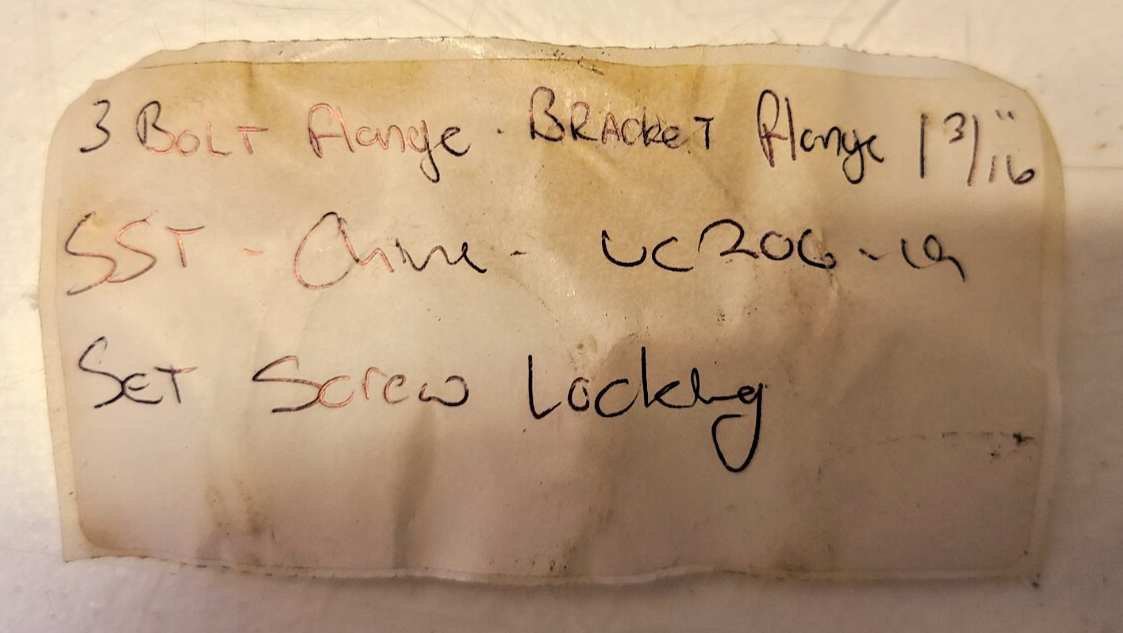 3 BOLT Flange - BRACKET Flange 1 3/16"
SST - China - UC206-19
SET Screw Locking